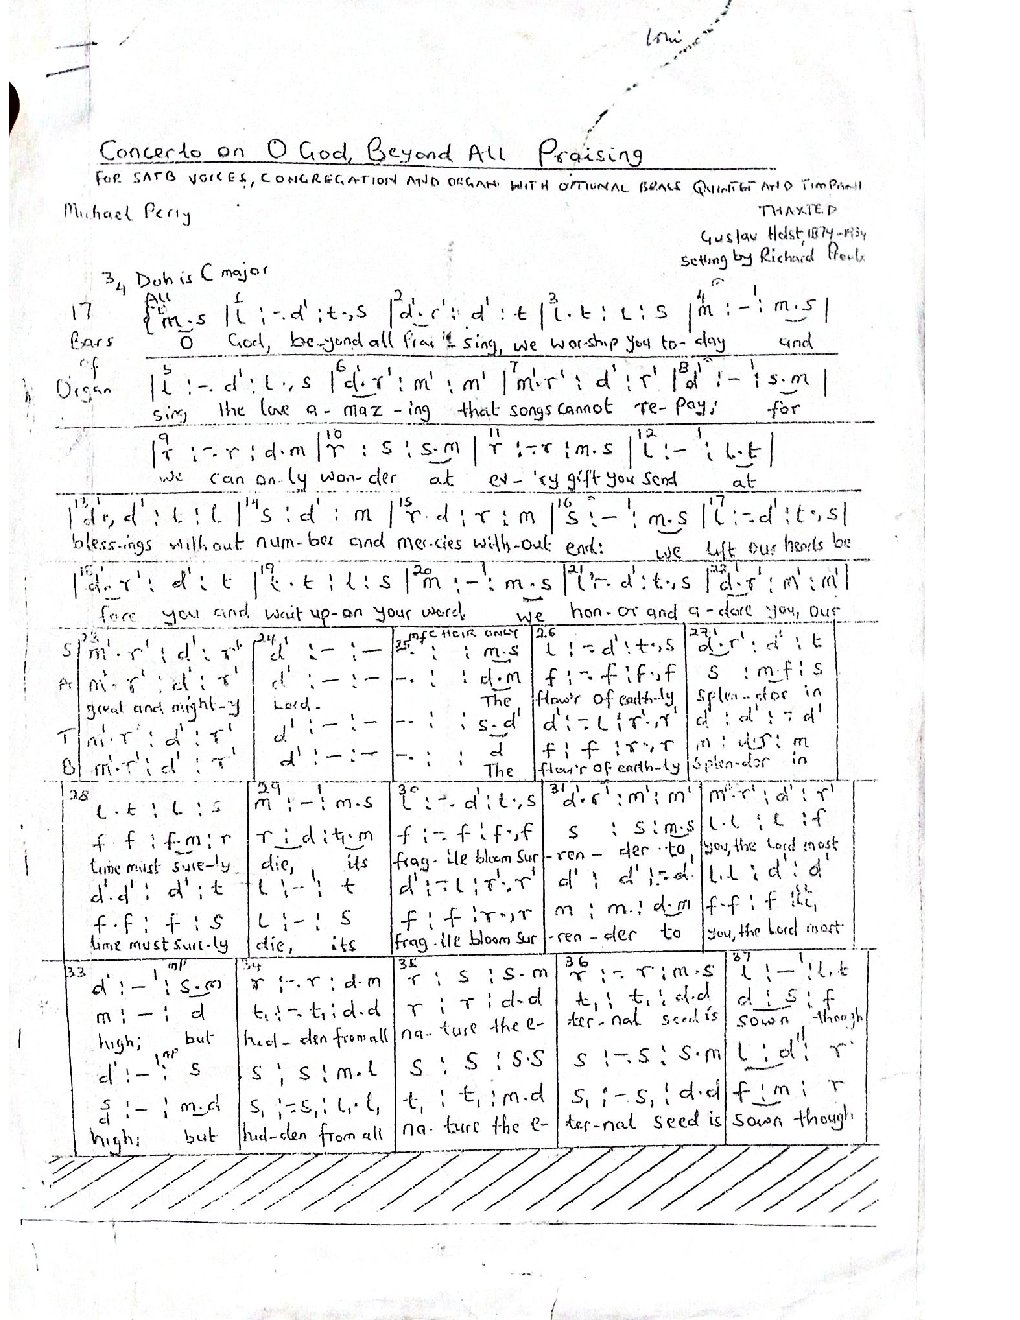 Concerto on O God, Beyond All Praising
FOR SATB VOICES, CONGREGATION AND ORGAN WITH OPTIONAL BRASS QUINTET AND TIMPANI
Michael Perry
THAXTED
Gustav Holst, 1874-1934
Setting by Richard Proulx
3/4 Doh is C major
17 Bars of Organ
All
{m.s |l :-.d' : t.,s |d'.r' : d' : t |l.t : l : s |m : - : m.s |
O God, be-yond all Prai-sing, we wor-ship you to-day and
|l :-.d' : t.,s |d'.r' : m' : m' |m'.r' : d' : r' |d' : - : s.m |
sing the love a-maz-ing that songs cannot re-pay; for
|r :-.r : d.m |r : s : s.m |r :-.r : m.s |l : - : l.t |
we can on-ly won-der at ev-'ry gift you send at
|d'., d' : l : l |s : d' : m |r.d : r : m |s : - : m.s |l :-.d' : t.,s |
bless-ings without num-ber and mer-cies with-out end: we lift our hearts be
|d'.r' : d' : t |l.t : l : s |m : - : m.s |l :-.d' : t.,s |d'.r' : m' : m' |
fore you and wait up-on your word, we hon-or and a-dore you, our
23 24 25 mf CHOIR ONLY 26 27
S m'.r' : d' : r' | d' : - : - | - : : m.s | l :-.d' : t.,s | d'.r' : d' : t
A m'.r' : d' : r' | d' : - : - | - : : d.m | f :-.f : f.,f | s : m.f : s
great and might-y Lord. The flow'r of earth-ly splen-dor in
T m'.r' : d' : r' | d' : - : - | - : : s.d' | d' :-.l : r'.,r' | d' : d' :-.d'
B m'.r' : d' : r' | d' : - : - | - : : d | f : f : r.,r | m : d.s : m
The flow'r of earth-ly splen-dor in
28 29 30 31
l.t : l : s | m : - : m.s | l :-.d' : t.,s | d'.r' : m' : m' | m'.r' : d' : r'
f.f : f.m : r | r : d : t,.m | f :-.f : f.,f | s : s : m.s | l.l : l : f
time must sure-ly die, its frag-ile bloom sur-ren-der to you, the Lord most
d'.d' : d' : t | l : - : t | d' :-.l : r'.,r' | d' : d' :-.d' | l.l : d' : d'
f.f : f : s | l : - : s | f : f : r.,r | m : m : d.m | f.f : f
time must sure-ly die, its frag-ile bloom sur-ren-der to you, the Lord most
33 mp 34 35 36 37
d' : - : s.m | r :-.r : d.m | r : s : s.m | r :-.r : m.s | l : - : l.t
m : - : d | t, :-.t, : d.d | r : r : d.d | t, : t, : d.d | d : s : f
high; but hid-den from all na-ture the e-ter-nal seed is sown though
d' : - : s | s : s : m.l | s : s : s.s | s :-.s : s.m | l : d' : r'
s : - : m.d | s, :-.s, : l,.l, | t, : t, : m.d | s, :-.s, : d.d | f : m : r
high; but hid-den from all na-ture the e-ter-nal seed is sown though